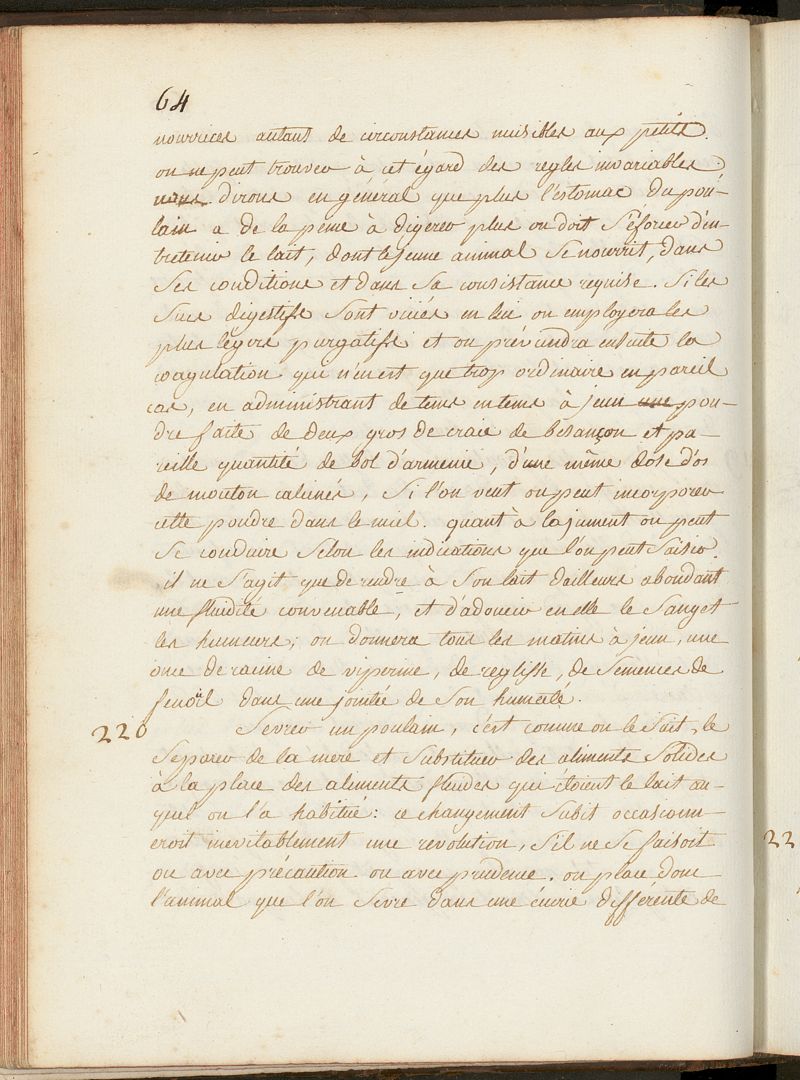 64
nourrices autant de circonstances nuisibles aux petits.
on ne peut trouver à cet égard des regles invariables;
nous dirons en général que plus l'estomac du pou-
lain a de la peine à digerer plus on doit s'éforcer d'en-
tretenir le lait, dont le jeune animal se nourrit, dans
ses conditions et dans sa consistance requise. si les
sucs digestifs sont viciés en lui on employera les
plus légers purgatifs et on préviendra ensuite la
coagulation qui n'en est que trop ordinaire en pareil
cas, en administrant de tems en tems à jeun une pou-
dre faite de deux gros de craie de besançon et pa-
reille quantité de bol d'armenie, d'une même dose d'os
de mouton calcinés, si l'on veut on peut incorporer
cette poudre dans le miel. quant à la jument on peut
se conduire selon les indications que l'on peut saisir.
il ne s'agit que de rendre à son lait d'ailleurs abondant
une fluidité convenable, et d'adoucir en elle le sang et
les humeurs; on donnera tous les matins à jeun, une
once de racine de viperine, de reglisse, de semences de
fenoüil dans une jointée de son humecté.
220 Sevrer un poulain, c'est comme on le sait, le
separer de la mere et substituer des aliments solides
à la place des aliments fluides qui étoient le lait au-
quel on l'a habitué: ce changement subit occasionn-
eroit inévitablement une revolution, s'il ne se faisoit
ou avec précaution ou avec prudence. on place donc
l'animal que l'on sevre dans une écurie différente de
22